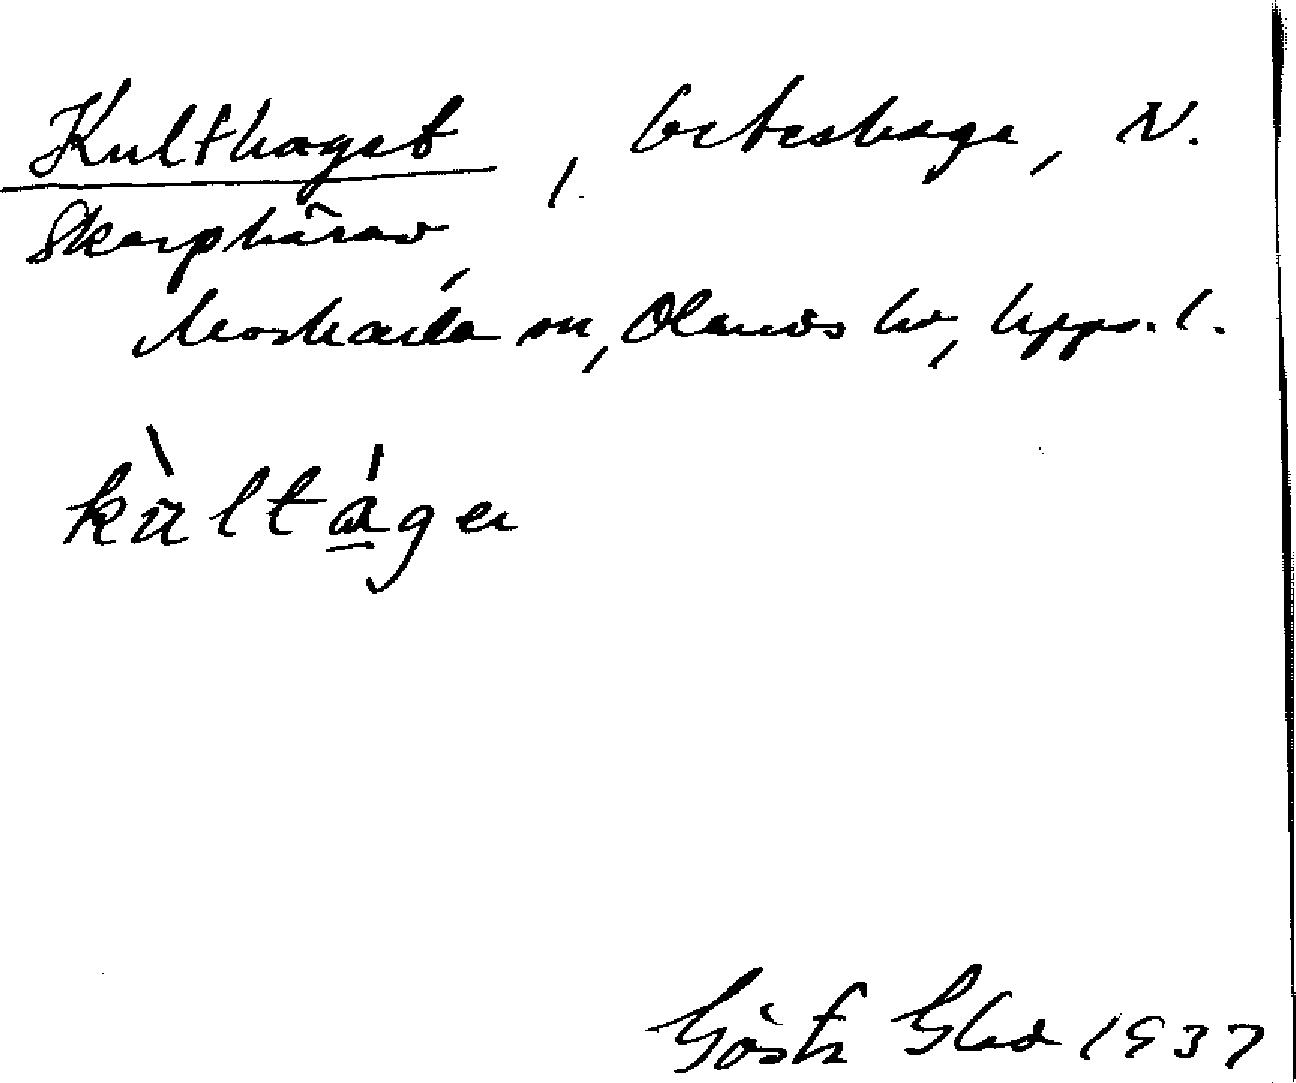 Kulthaget, beteshage, N.
Skarphärad,
Morkarla sn, Olands hd, Upps. l.
kùltáger
Gösta Glad 1937